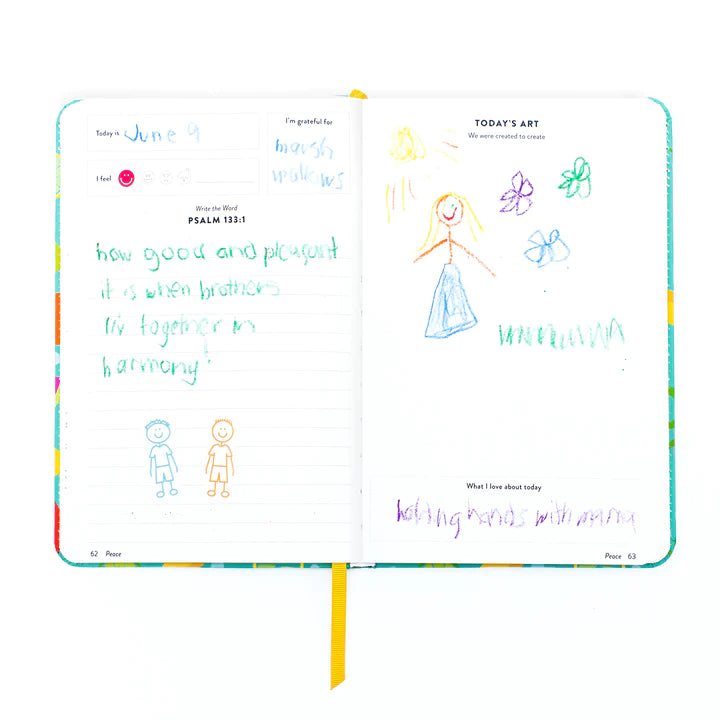 Today is June 9
I feel
I'm grateful for
marsh
mallows
Write the Word
PSALM 133:1
how good and pleasant
it is when brothers
liv together in
harmony!
62 Peace
TODAY'S ART
We were created to create
What I love about today
holding hands with mama
Peace 63